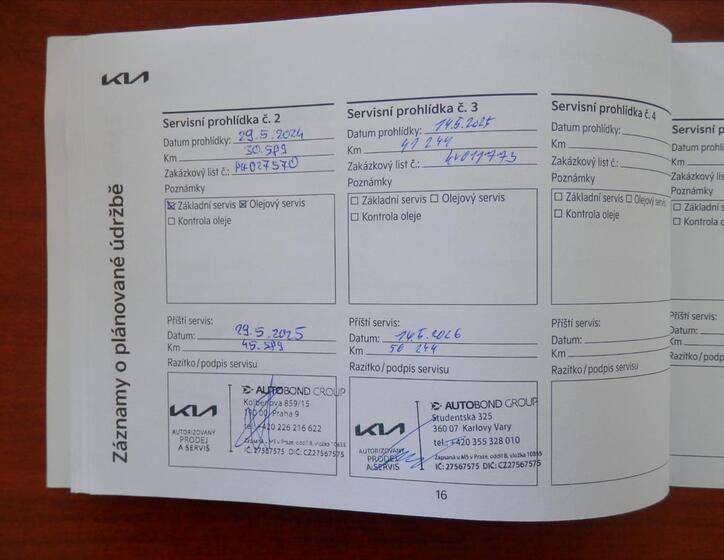 KIA
Záznamy o plánované údržbě
Servisní prohlídka č. 2
Datum prohlídky: 29.5.2024
Km 30.589
Zakázkový list č.: PH027570
Poznámky
Základní servis Olejový servis
Kontrola oleje
Příští servis:
Datum: 29.5.2025
Km 45.589
Razítko/podpis servisu
KIA
AUTORIZOVANÝ
PRODEJ
A SERVIS
AUTOBOND GROUP
Kolbenova 859/15
190 00 Praha 9
tel.: +420 226 216 622
Zapsaná u MS v Praze, oddíl B, vložka 10855
IČ: 27567575 DIČ: CZ27567575
Servisní prohlídka č. 3
Datum prohlídky: 14.5.2025
Km 41 244
Zakázkový list č.: KV011773
Poznámky
Základní servis Olejový servis
Kontrola oleje
Příští servis:
Datum: 14.5.2026
Km 56 244
Razítko/podpis servisu
KIA
AUTORIZOVANÝ
PRODEJ
A SERVIS
AUTOBOND GROUP
Studentská 325
360 07 Karlovy Vary
tel.: +420 355 328 010
Zapsaná u MS v Praze, oddíl B, vložka 10855
IČ: 27567575 DIČ: CZ27567575
Servisní prohlídka č. 4
Datum prohlídky:
Km
Zakázkový list č.:
Poznámky
Základní servis Olejový servis
Kontrola oleje
Příští servis:
Datum:
Km
Razítko/podpis servisu
Servisní p
Datum prohl
Km
Zakázkový lis
Poznámky
Základní s
Kontrola o
Příští servis:
Datum:
Km
Razítko/podp
16